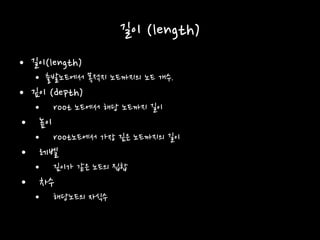 길이 (length)
길이(length)
출발노드에서 목적지 노드까지의 노드 개수.
깊이 (depth)
root 노드에서 해당 노드까지 길이
높이
root노드에서 가장 깊은 노드까지의 길이
레벨
깊이가 같은 노드의 집합
차수
해당노드의 자식수